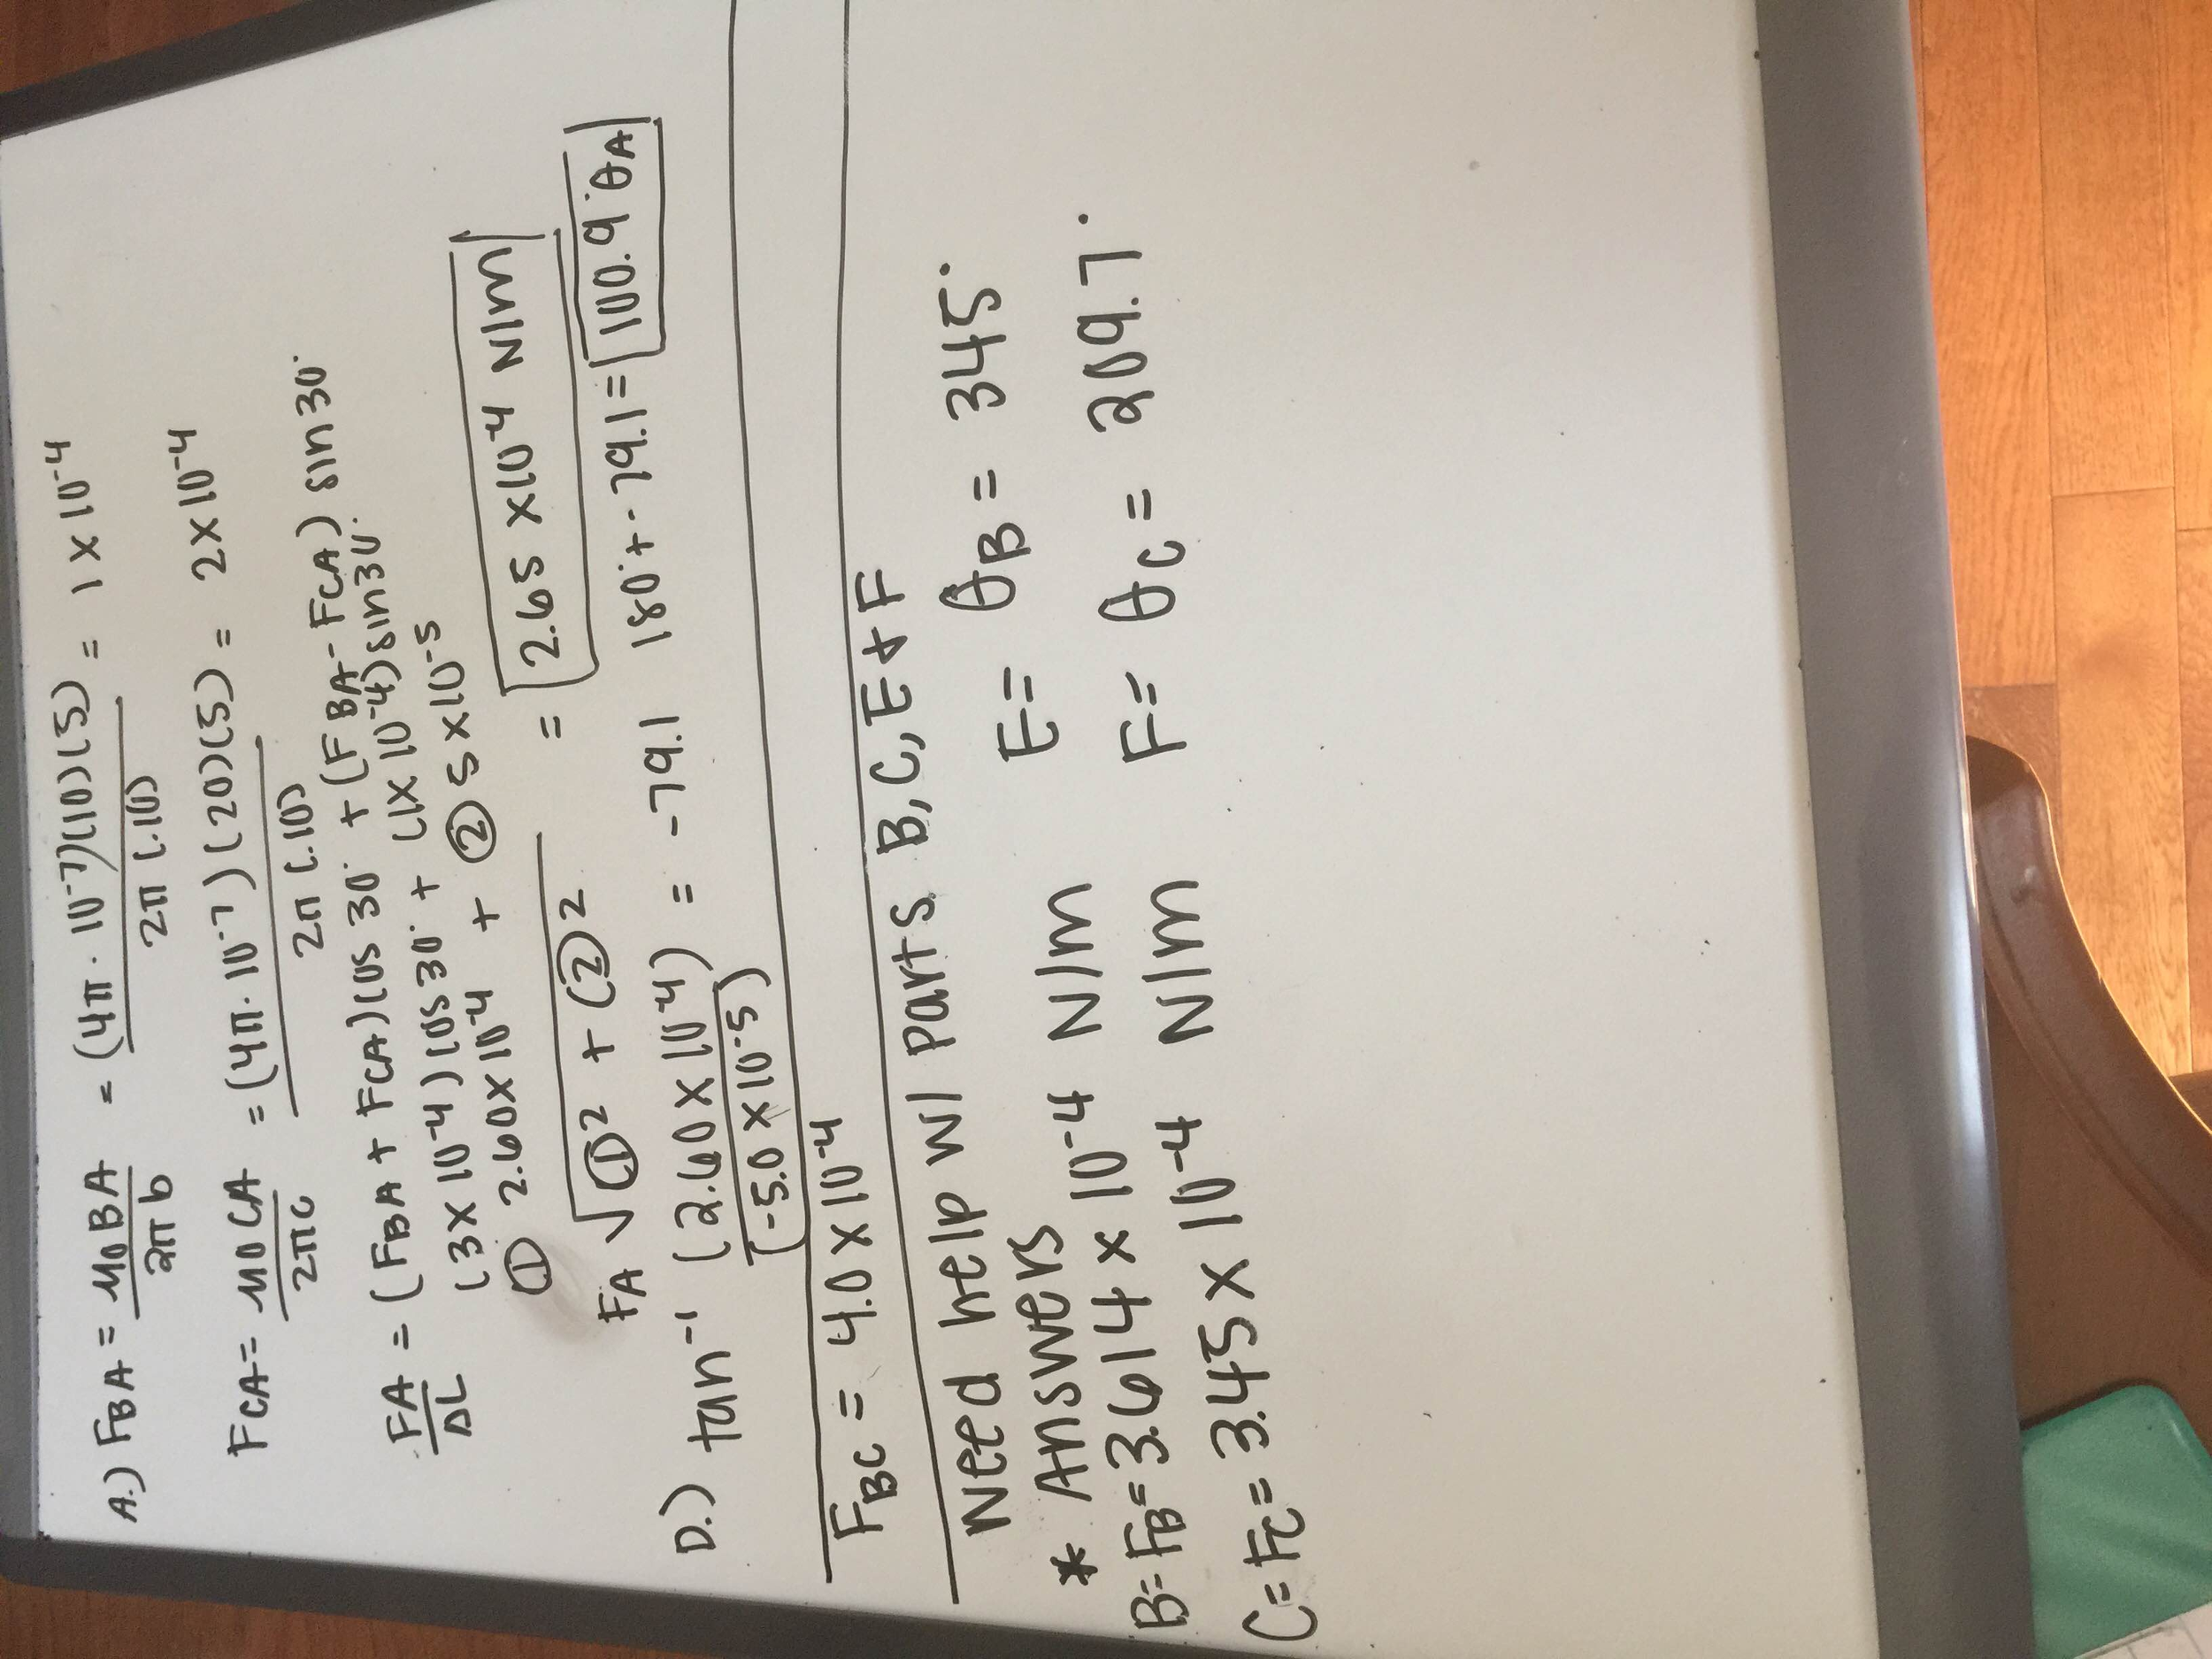 A.) FBA = μ0BA / 2πb = (4π · 10⁻⁷)(10)(5) / 2π (.10) = 1 x 10⁻⁴
FCA = μ0 CA / 2πc = (4π · 10⁻⁷) (20)(5) / 2π (.10) = 2 x 10⁻⁴
FA / ΔL = (FBA + FCA) cos 30° + (FBA - FCA) sin 30°
(3 x 10⁻⁴) cos 30° + (1 x 10⁻⁴) sin 30°
① 2.60 x 10⁻⁴ + ② 5 x 10⁻⁵
FA √①² + ②² = 2.65 x 10⁻⁴ N/m
D.) tan⁻¹ (2.60 x 10⁻⁴) / (-5.0 x 10⁻⁵) = -79.1 180 + -79.1 = 100.9° θA
FBC = 4.0 x 10⁻⁴
Need help w/ parts B, C, E & F
* Answers
B = FB = 3.614 x 10⁻⁴ N/m E = θB = 345°
C = FC = 3.45 x 10⁻⁴ N/m F = θC = 209.7°